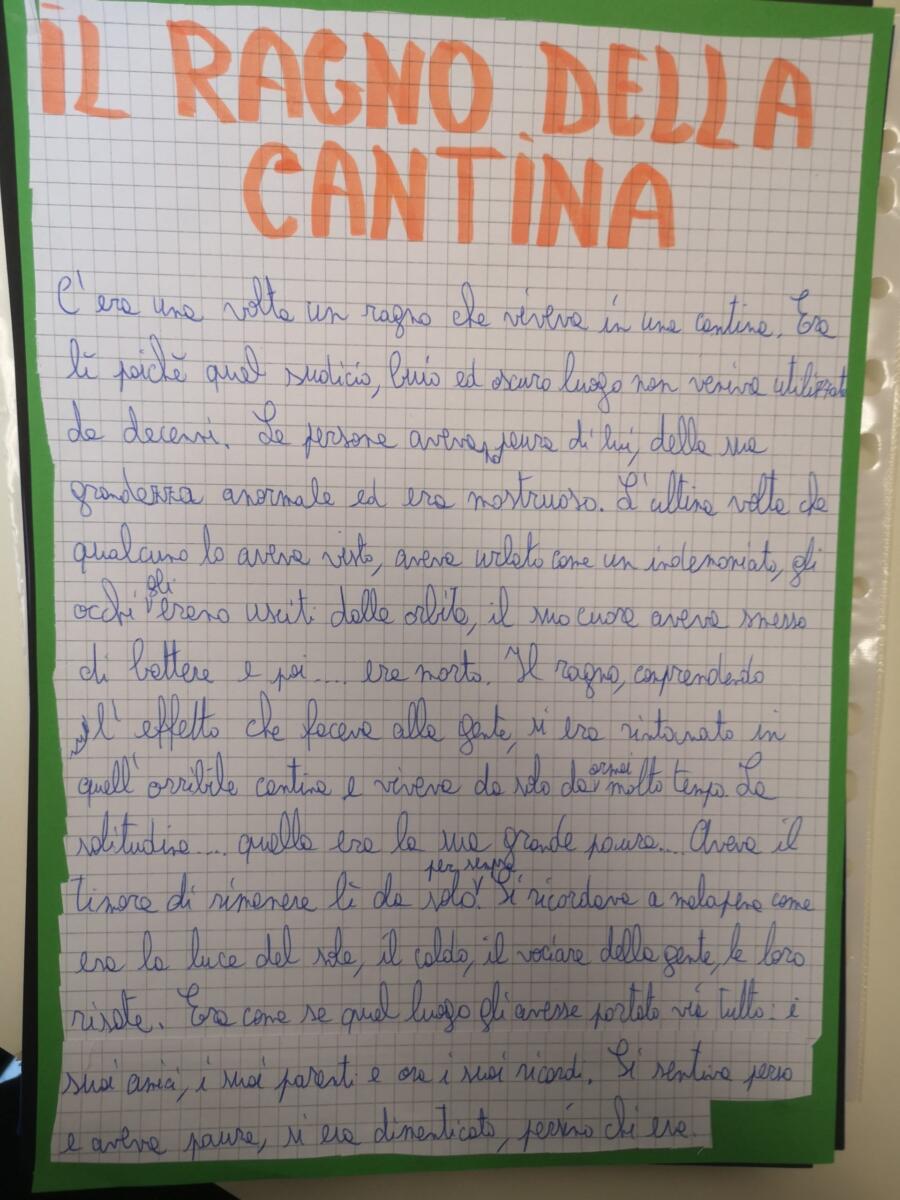 IL RAGNO DELLA
CANTINA
C'era una volta un ragno che viveva in una cantina. Era
lì poichè quel sudicio, buio ed oscuro luogo non veniva utilizzato
da decenni. Le persone avevano paura di lui, della sua
grandezza anormale ed era mostruoso. L'ultima volta che
qualcuno lo aveva visto, aveva urlato come un indemoniato, gli
occhi gli erano usciti dalle orbite, il suo cuore aveva smesso
di battere e poi.... era morto. Il ragno, comprendendo
l'effetto che faceva alla gente, si era rintanato in
quell'orribile cantina e viveva da solo da ormai molto tempo. La
solitudine.... quella era la sua grande paura.... Aveva il
timore di rimanere lì da solo per sempre. Si ricordava a malapena come
era la luce del sole, il caldo, il vociare della gente, le loro
risate. Era come se quel luogo gli avesse portato via tutto: i
suoi amici, i suoi parenti e ora i suoi ricordi. Si sentiva perso
e aveva paura, si era dimenticato, persino chi era.